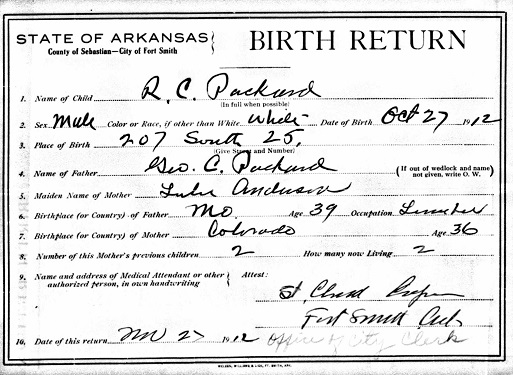 STATE OF ARKANSAS
County of Sebastian—City of Fort Smith
BIRTH RETURN
1. Name of Child R. C. Packard
(In full when possible)
2. Sex Male Color or Race, if other than White White Date of Birth Oct 27 1912
3. Place of Birth 207 South 25.
(Give Street and Number)
4. Name of Father Geo. C. Packard (If out of wedlock and name not given, write O. W.)
5. Maiden Name of Mother Anderson
6. Birthplace (or Country) of Father Mo. Age 39 Occupation
7. Birthplace (or Country) of Mother Colorado Age 36
8. Number of this Mother's previous children 2 How many now Living 2
9. Name and address of Medical Attendant or other authorized person, in own handwriting Attest:
Fort Smith Ark
10. Date of this return 1912 Office of City Clerk